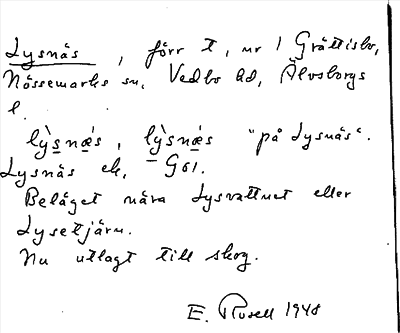 Lysnäs, förr t, ur 1 Gröttisbo,
Nössemarks sn, Vedbo hd, Älvsborgs
l.
lỳsnæ̀s, lỳsnæ̀s "på Lysnäs".
Lysnäs ek, G61.
Beläget nära Lysvattnet eller
Lysetjärn.
Nu utlagt till skog.
E. Rosell 1948